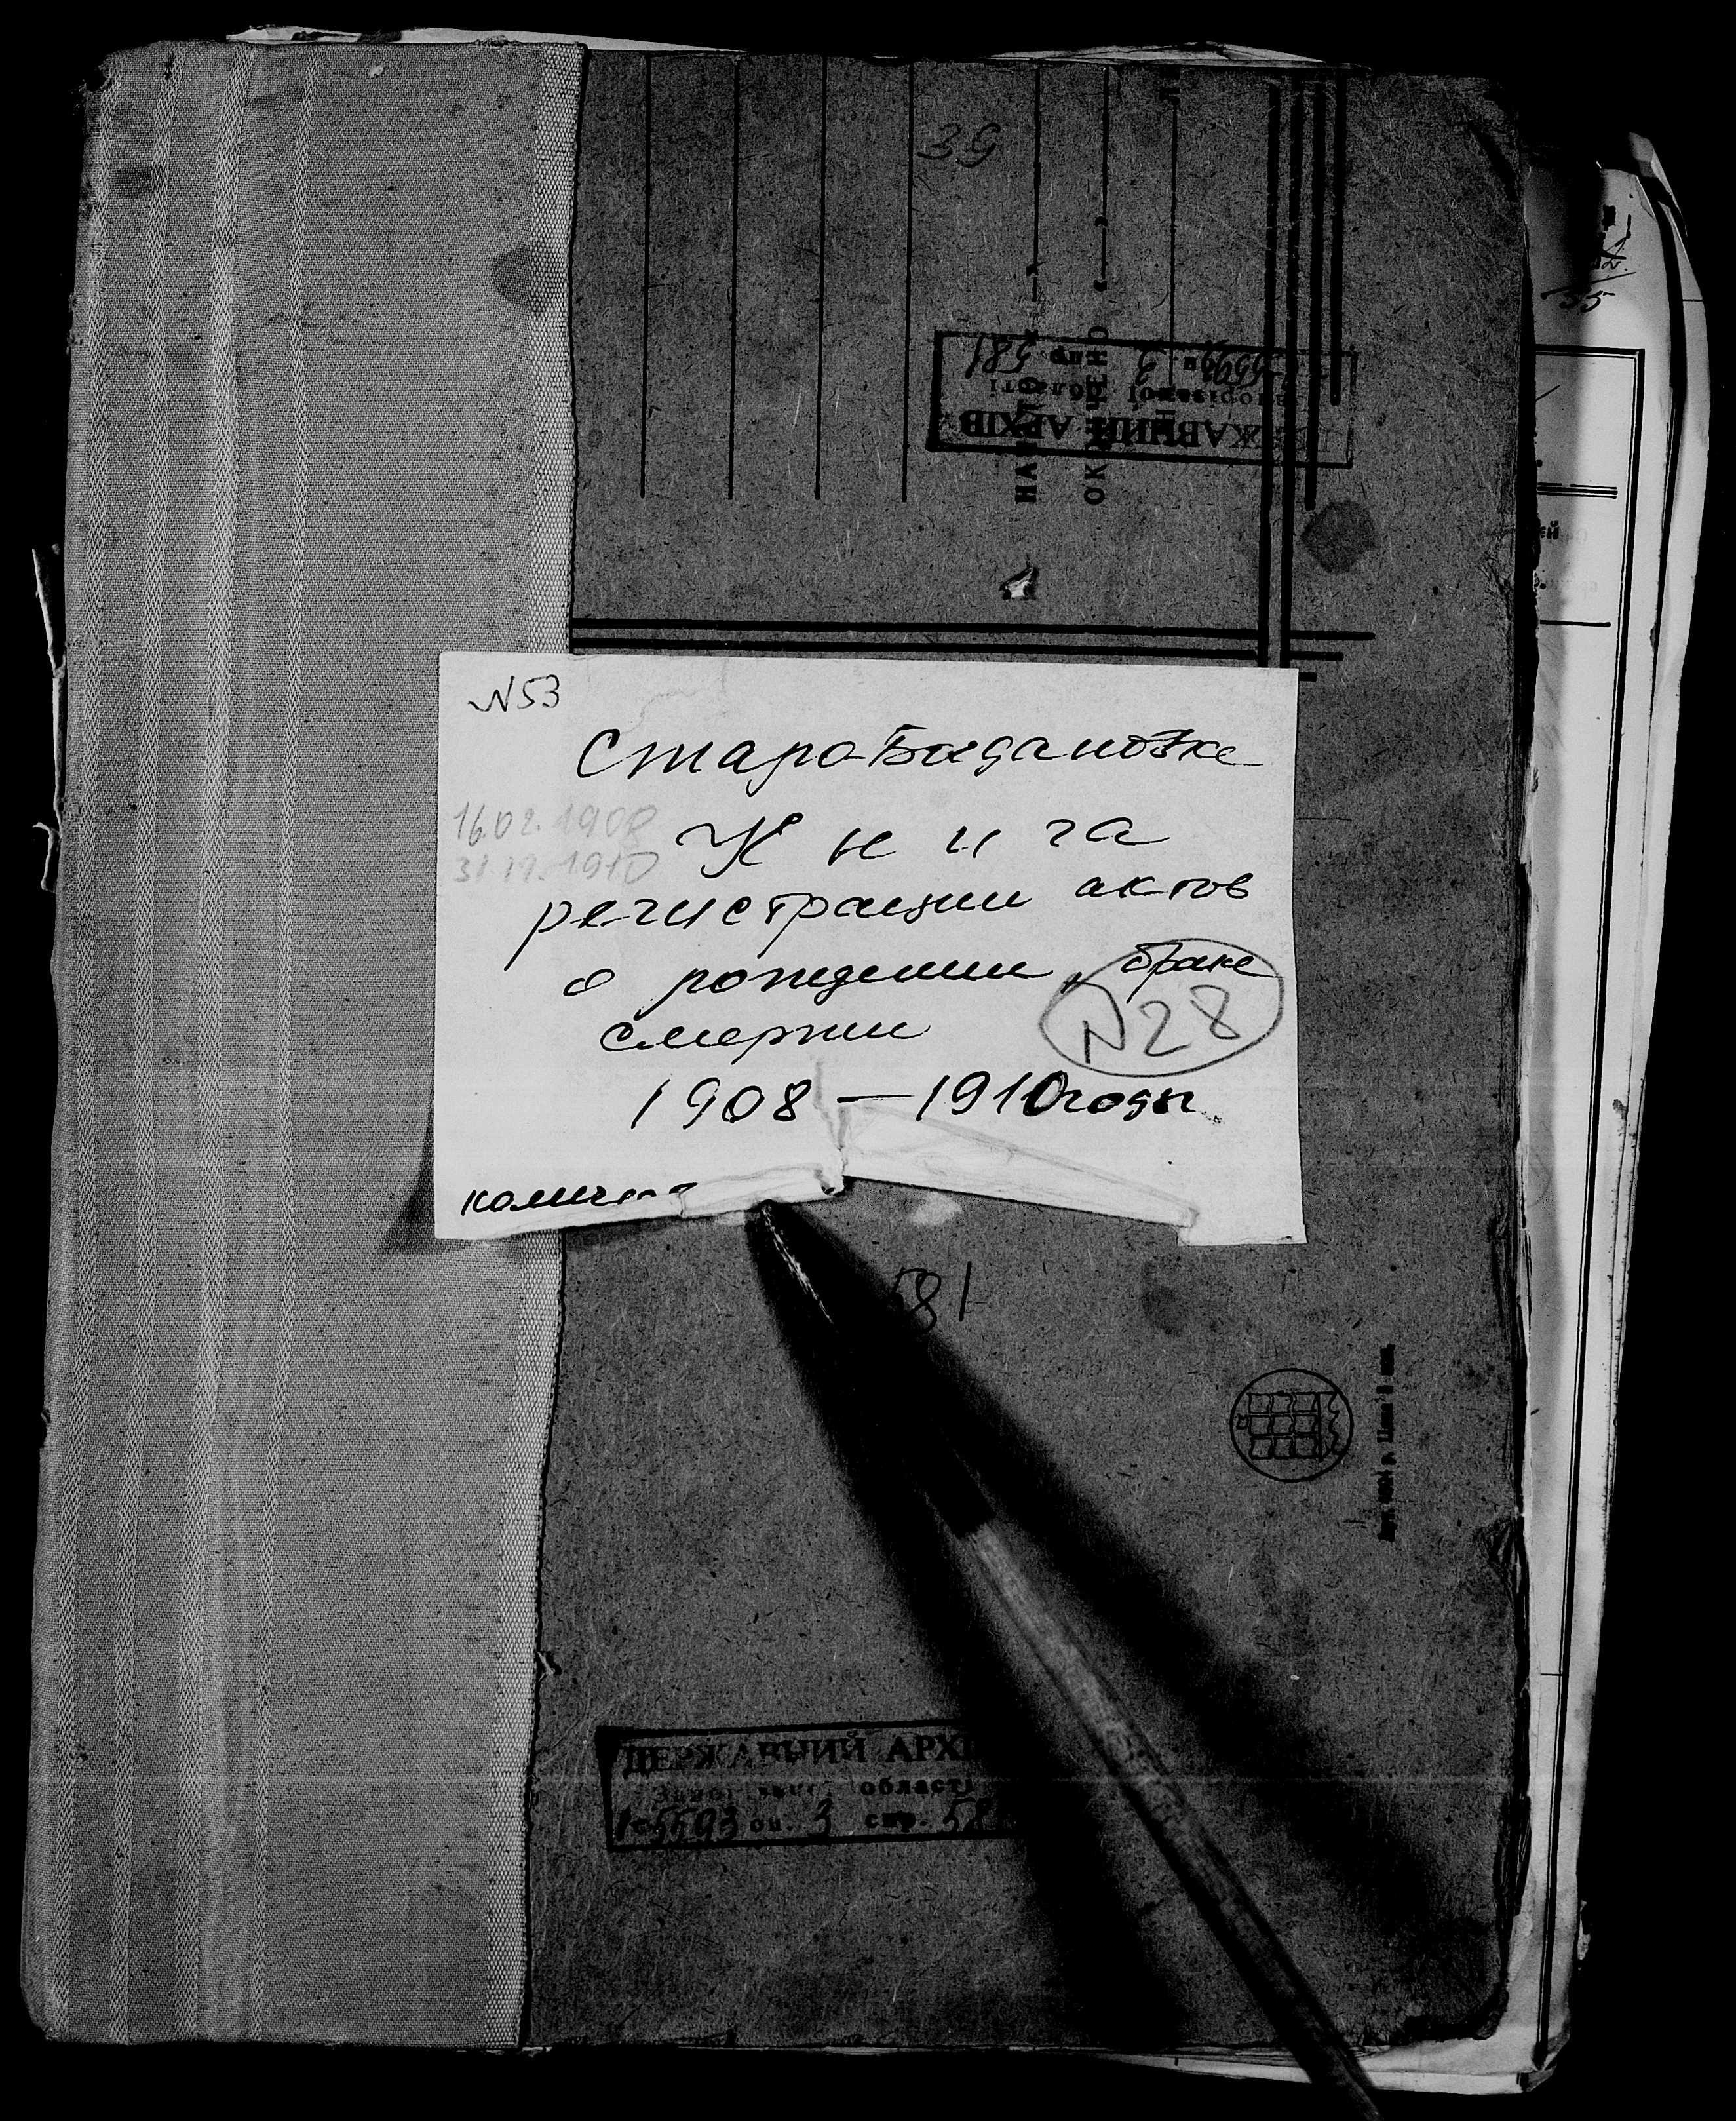 39
ДЕРЖАВНИЙ АРХІВ
Запорізької області
5593 3 спр 581
N 53
Старо-Богдановка
16.02.1908
31.12.1910
Книга
регистрации актов
о рождении, браке
смерти
N 28
1908 — 1910 годы
581
ДЕРЖАВНИЙ АРХІ
області
5593 оп. 3 спр. 58